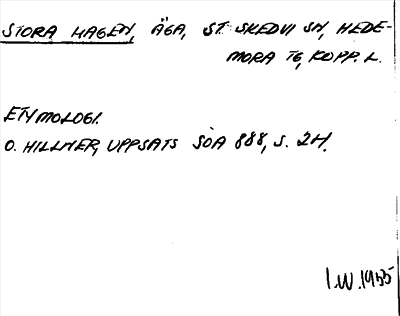 STORA HAGEN, ÄGA, ST. SKEDVI SN, HEDE-
MORA TG, KOPP. L.
ETYMOLOGI.
O. HILLNER, UPPSATS SOA 888, S. 24.
I.W. 1955